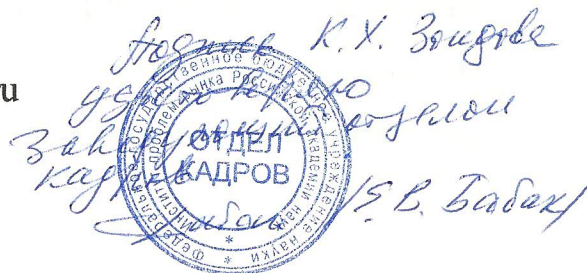 Подпись К.Х. Зоидова
и
удостоверяю
Заведующий отделом
кадров
/Я.В. Бабак/
Федеральное государственное бюджетное учреждение науки
Институт проблем рынка Российской академии наук
ОТДЕЛ
КАДРОВ